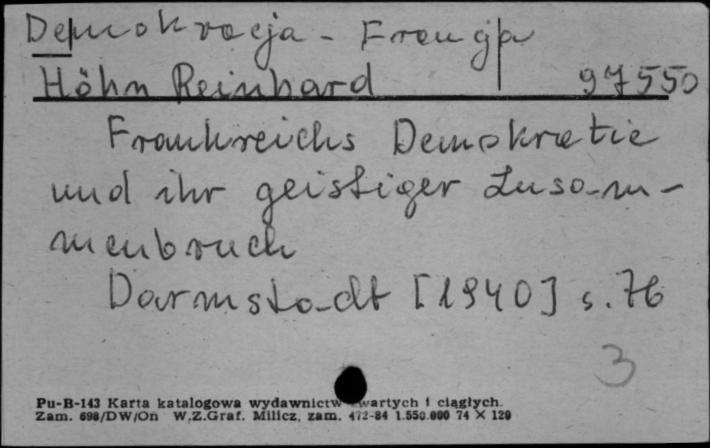 Demokracja - Francja
Höhn Reinhard 97550
Frankreichs Demokratie
und ihr geistiger Zusam-
menbruch
Darmstadt [1940] s. 76
3
Pu-B-143 Karta katalogowa wydawnictw zwartych i ciągłych.
Zam. 698/DW/On W.Z.Graf. Milicz, zam. 472-84 1.550.000 74 × 120